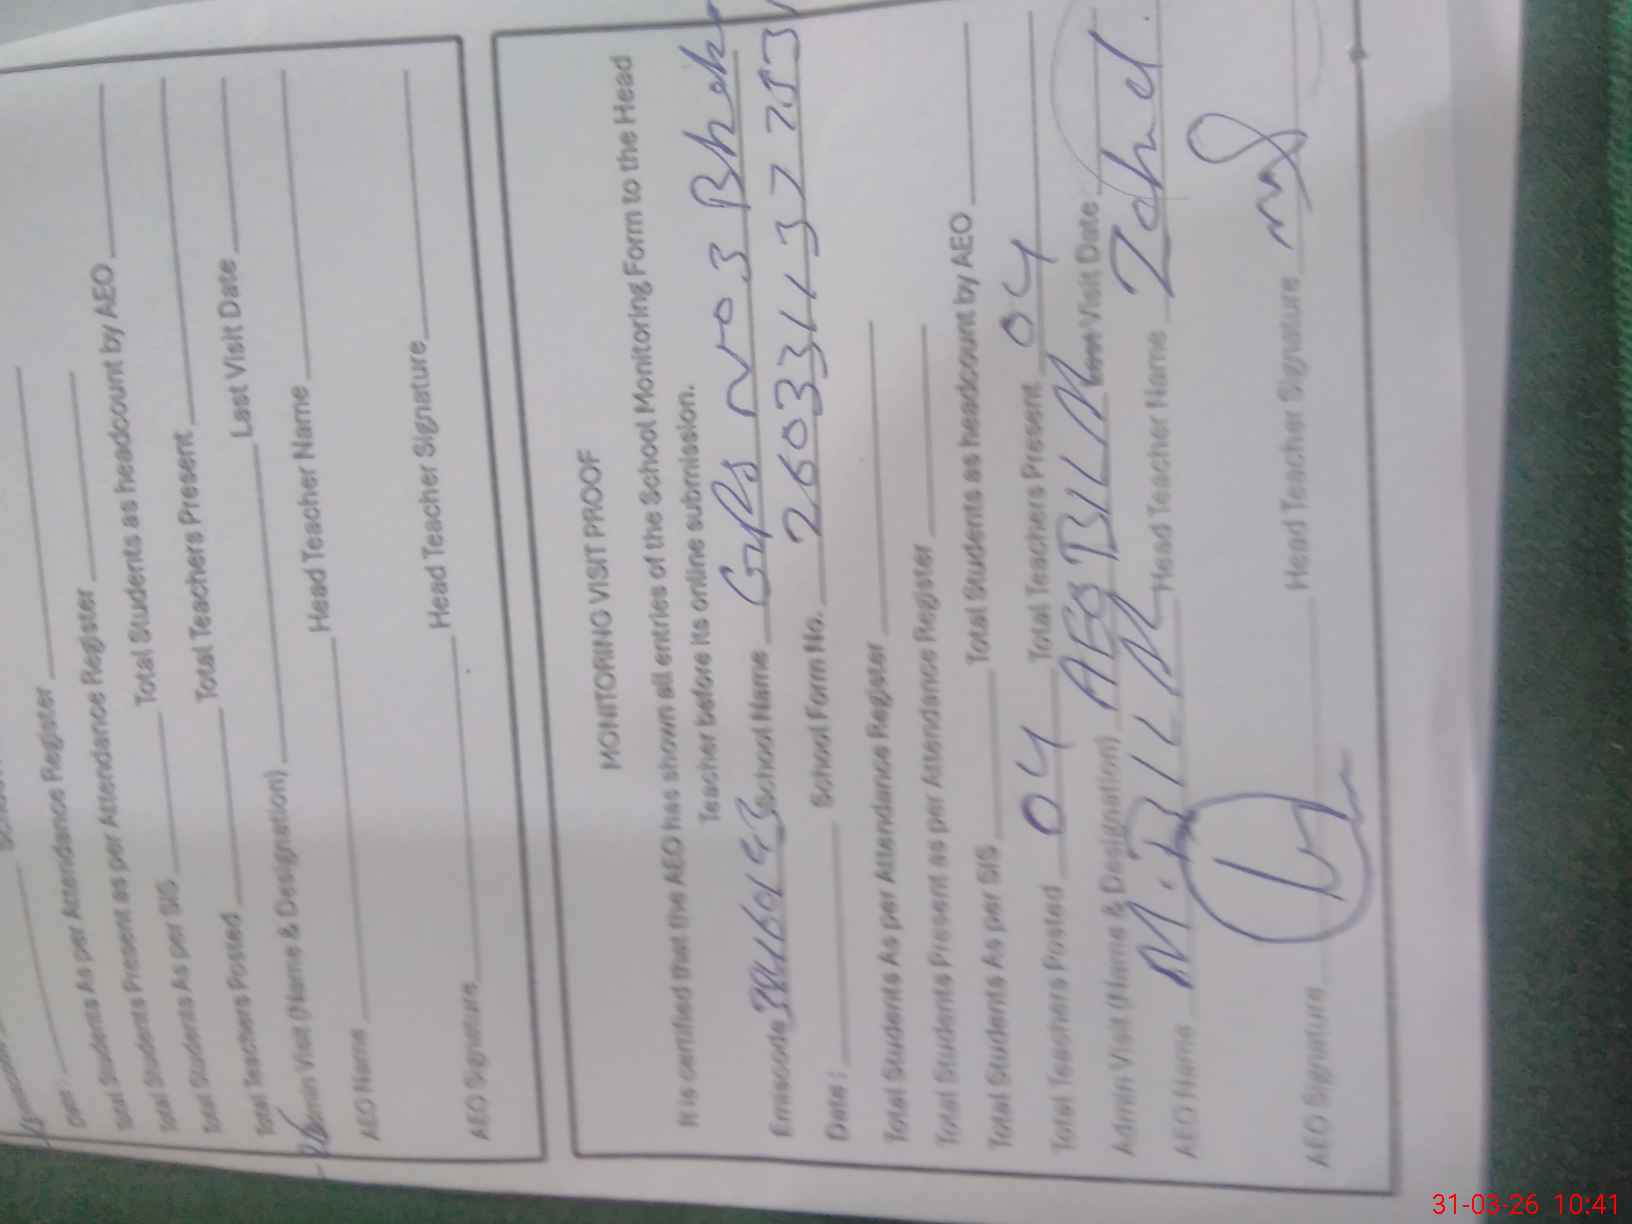 Date :
Total Students As per Attendance Register
Total Students Present as per Attendance Register
Total Students As per SIS Total Students as headcount by AEO
Total Teachers Posted Total Teachers Present
Admin Visit (Name & Designation) Last Visit Date
AEO Name Head Teacher Name
AEO Signature Head Teacher Signature
MONITORING VISIT PROOF
It is certified that the AEO has shown all entries of the School Monitoring Form to the Head
Teacher before its online submission.
Emiscode School Name GPS No 3
Date : School Form No. 2603311137
Total Students As per Attendance Register
Total Students Present as per Attendance Register
Total Students As per SIS Total Students as headcount by AEO
Total Teachers Posted 04 Total Teachers Present 04
Admin Visit (Name & Designation) AEO Visit Date
AEO Name Head Teacher Name
AEO Signature Head Teacher Signature
31-03-26 10:41